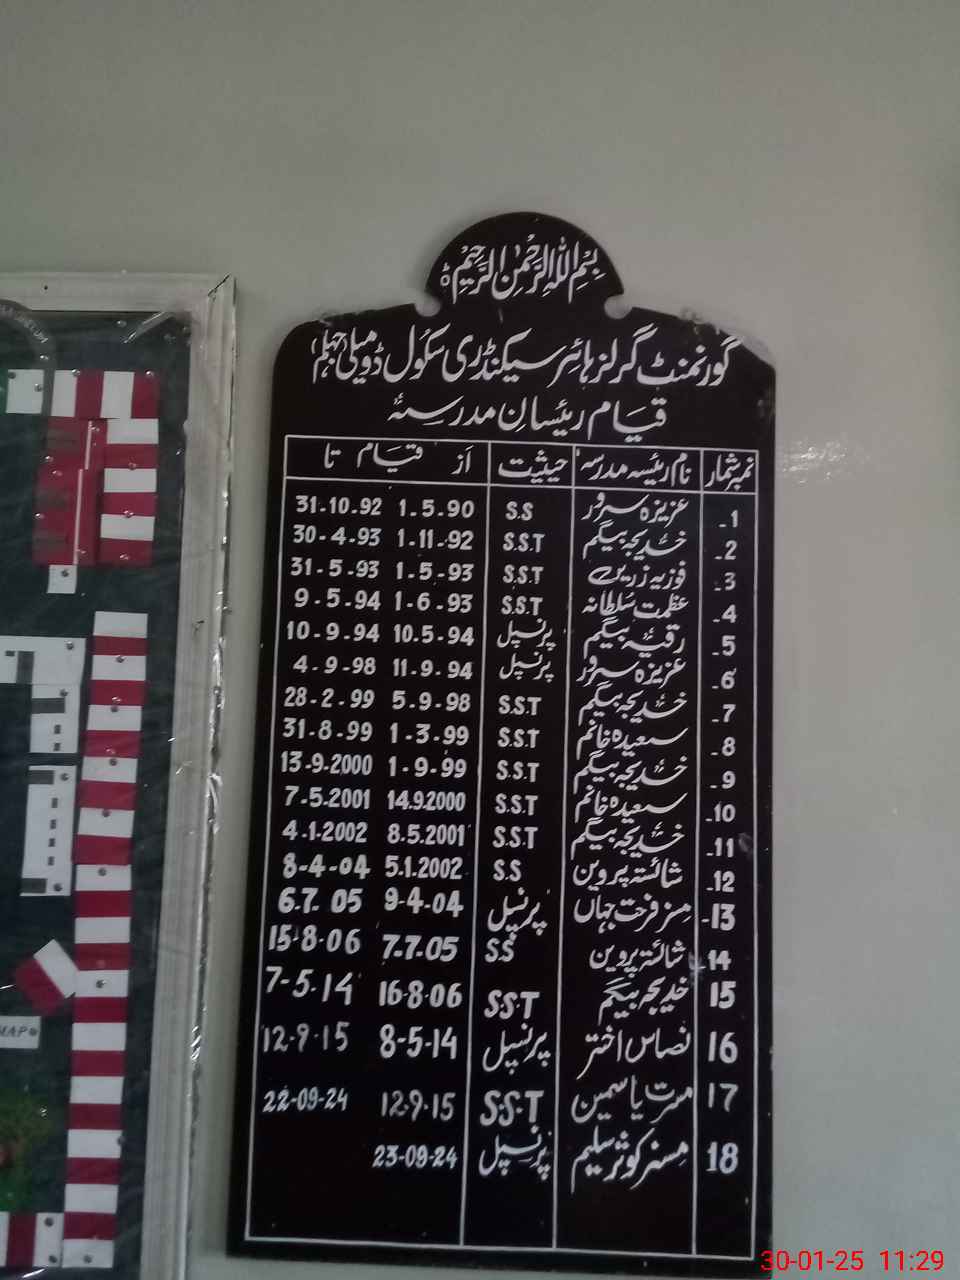 بِسْمِ اللهِ الرَّحْمٰنِ الرَّحِيْمِ ۵
گورنمنٹ گرلز ہائر سیکنڈری سکول ڈومیلی (جہلم)
قیام رئیسانِ مدرسہ
نمبر شمار نام رئیسہ مدرسہ حیثیت از قیام تا
1- عزیزہ سرور S.S 1.5.90 31.10.92
2- خدیجہ بیگم S.S.T 1-11-92 30-4-93
3- فوزیہ زرین S.S.T 1-5-93 31-5-93
4- عظمت سلطانہ S.S.T 1-6-93 9-5-94
5- رقیہ بیگم پرنسپل 10.5-94 10-9-94
6- عزیزہ سرور پرنسپل 11-9-94 4-9-98
7- خدیجہ بیگم S.S.T 5-9-98 28-2-99
8- سعیدہ خانم S.S.T 1-3-99 31-8-99
9- خدیجہ بیگم S.S.T 1-9-99 13-9-2000
10- سعیدہ خانم S.S.T 14.9.2000 7-5.2001
11- خدیجہ بیگم S.S.T 8.5.2001 4.1.2002
12- شائستہ پروین S.S 5.1.2002 8-4-04
13- مسز فرحت جہاں پرنسپل 9-4-04 6.7.05
14 شائستہ پروین S.S 7.7.05 15-8-06
15 خدیجہ بیگم S.S.T 16-8-06 7-5.14
16 نصاس اختر پرنسپل 8-5-14 12-9-15
17 مسرت یاسمین S.S.T 12.9.15 22-09-24
18 مسز کوثر سلیم پرنسپل 23-09-24
MAP
30-01-25 11:29